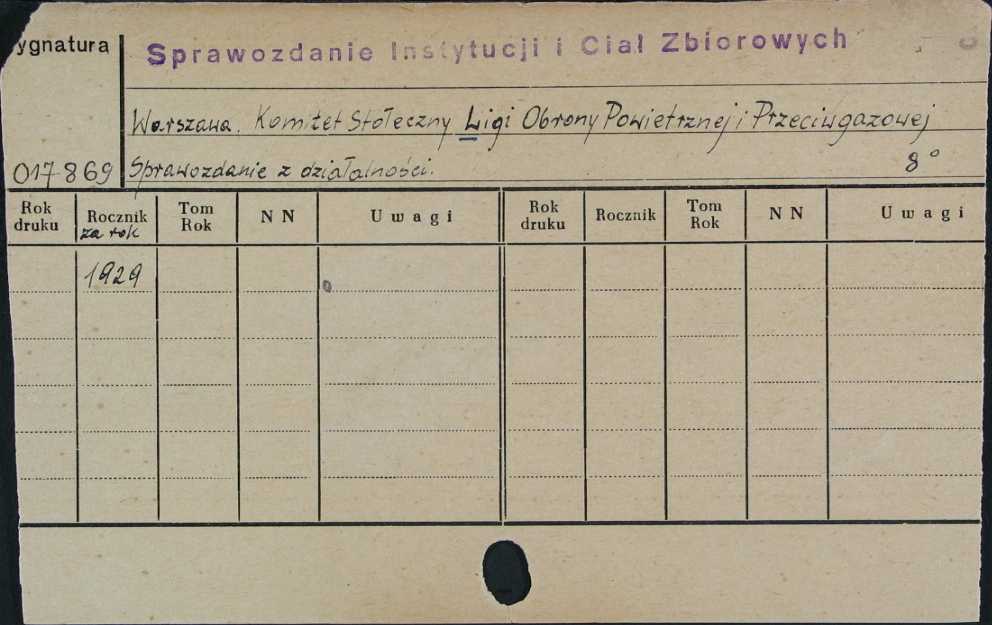 ygnatura
Sprawozdanie Instytucji i Ciał Zbiorowych
Warszawa. Komitet Stołeczny Ligi Obrony Powietrznej i Przeciwgazowej
017869 Sprawozdanie z działalności. 8°
Rok druku Rocznik za rok Tom Rok NN Uwagi Rok druku Rocznik Tom Rok NN Uwagi
1929